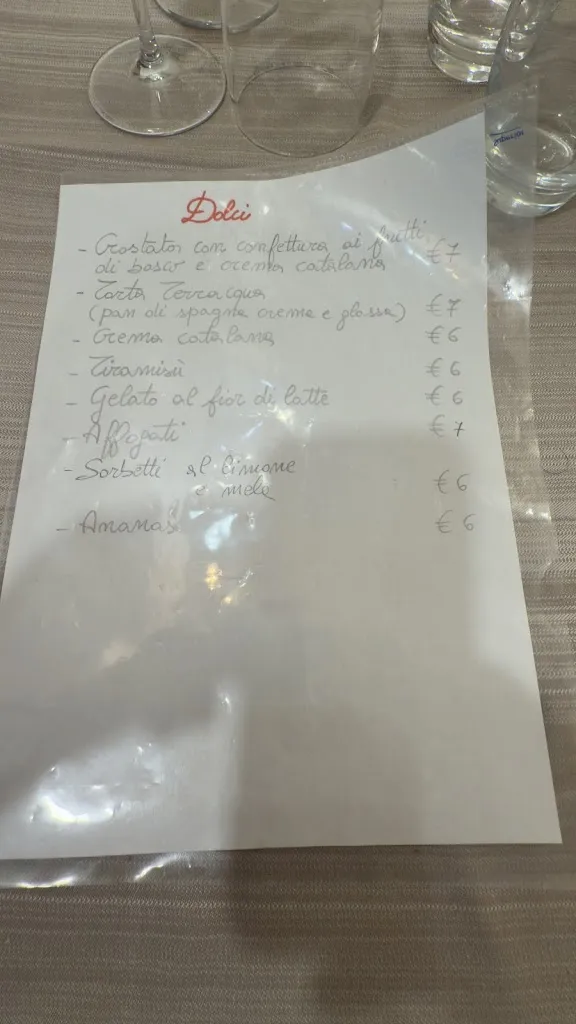 Dolci
- Crostata con confettura ai frutti
di bosco e crema catalana €7
- Torta Terracqua
(pan di spagna crema e glassa) €7
- Crema catalana €6
- Tiramisù €6
- Gelato al fior di latte €6
- Affogati €7
- Sorbetti al limone
e mela €6
- Ananas €6